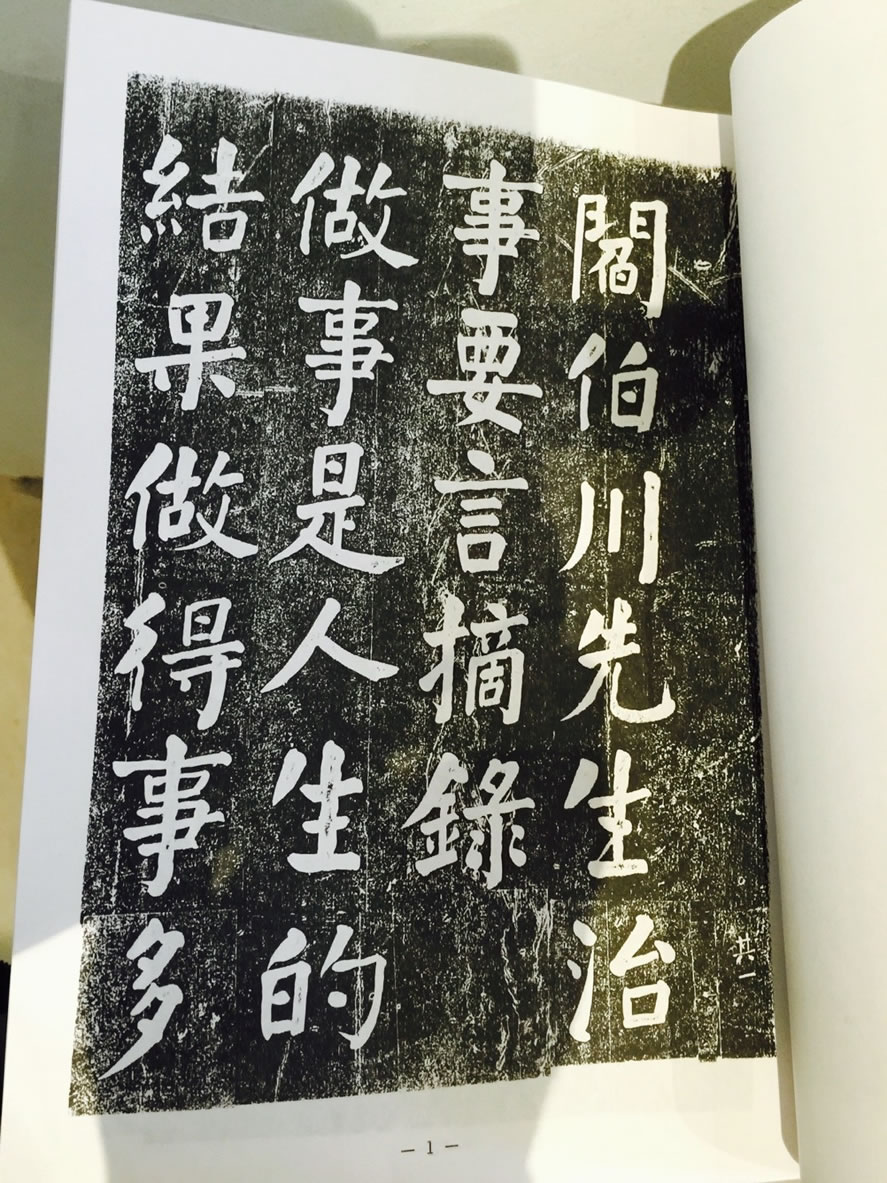 共一
閻伯川先生治
事要言摘錄
做事是人生的
結果做得事多
— 1 —